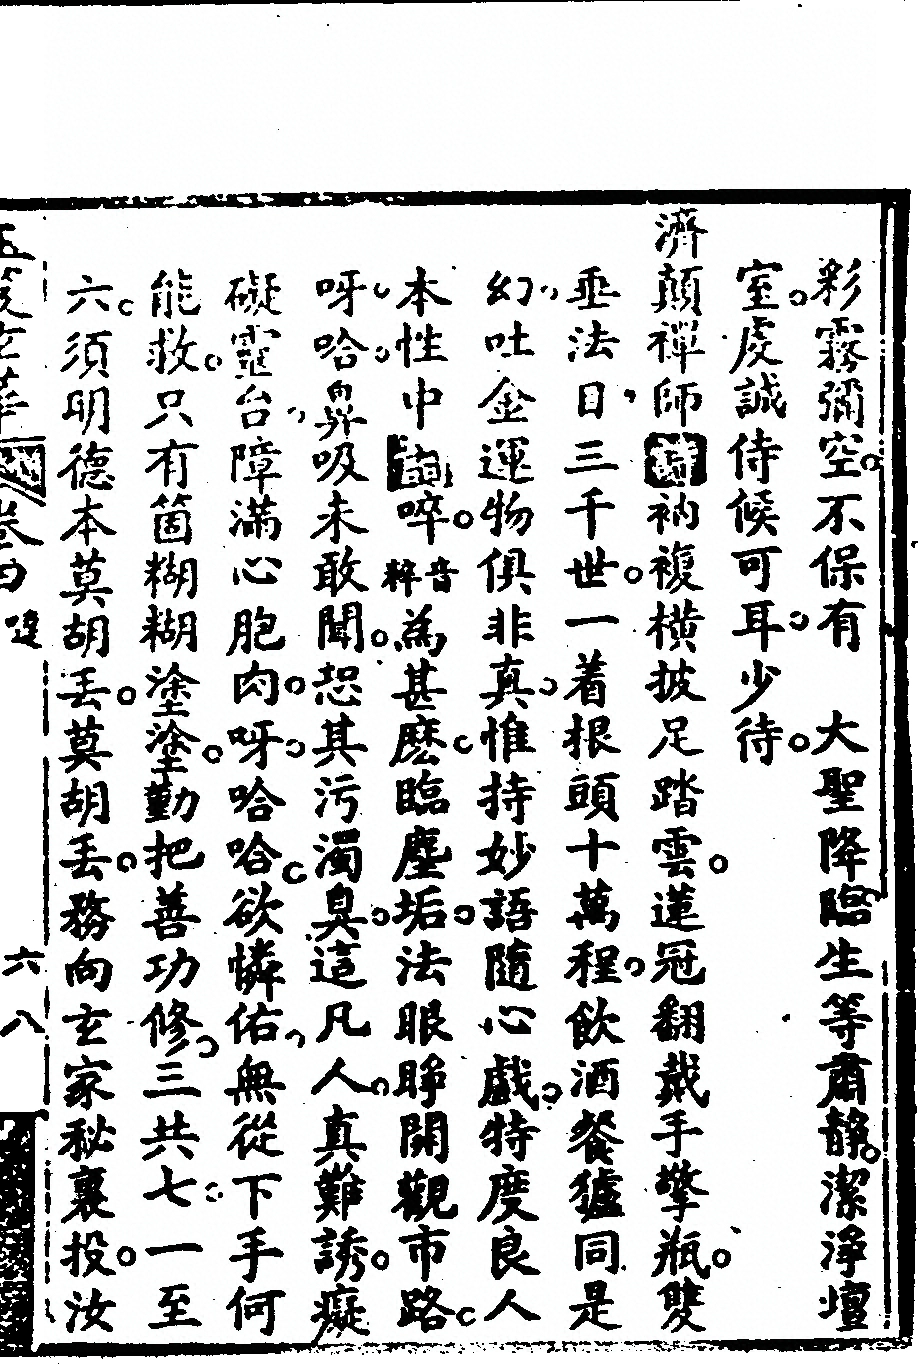 彩霧彌空。不保有　大聖降臨。生等肅靜。潔淨壇
室。虔誠侍候可耳。少待。
濟顛禪師詩衲複橫披足踏雲。蓮冠翻戴手擎瓶。雙
垂法目。三千世。一着根頭十萬程。飲酒餐獹同是
幻。吐金運物俱非真。惟持妙語隨心戲。特度良人
本性中詞啐。音粹為甚麽。臨塵垢。法眼睜開觀市路。
呀。哈。鼻吸未敢聞。恐其污濁臭。這凡人。真難誘。癡
礙靈台。障滿心胞肉。呀。哈哈。欲憐佑。無從下手何
能救。只有箇糊糊塗塗。勤把善功修。三共七。一至
六。須明德本莫胡丟。莫胡丟。務向玄家秘裏投。汝
卷四
六八